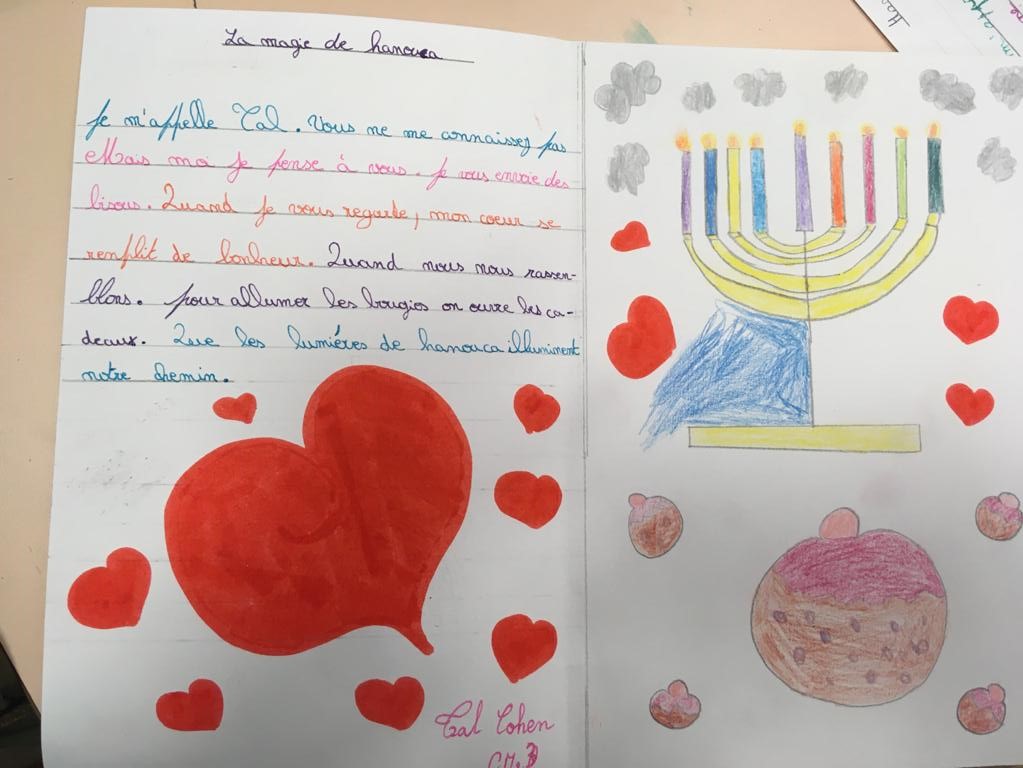 La magie de hanouca
Je m'appelle Tal. Vous ne me connaissez pas
Mais moi je pense à vous. Je vous envoie des
bisous. Quand je vous regarde, mon coeur se
remplit de bonheur. Quand nous nous rassem-
blons. pour allumer les bougies on ouvre les ca-
deaux. Que les lumiéres de hanouca illuminent
notre chemin.
Tal Cohen